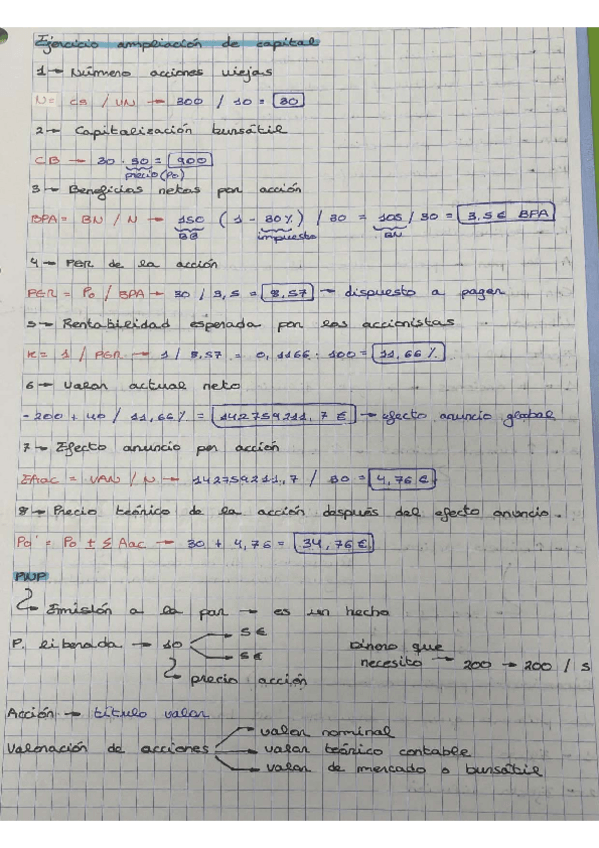 Ejercicio ampliación de capital
1 → Número acciones viejas
N = CS / VN → 300 / 10 = 30
2 → Capitalización bursátil
CB → 30 · 30 = 900
precio (Po)
3 → Beneficios netos por acción
BPA = BN / N → 150 (1 - 30%) / 30 = 105 / 30 = 3,5 € BPA
BB impuesto BN
4 → PER de la acción
PER = Po / BPA → 30 / 3,5 = 8,57 → dispuesto a pagar
5 → Rentabilidad esperada por los accionistas
K = 1 / PER → 1 / 8,57 = 0,1166 · 100 = 11,66 %
6 → Valor actual neto
- 200 + 40 / 11,66% = 142759211,7 € → efecto anuncio global
7 → Efecto anuncio por acción
EAac = VAN / N → 142759211,7 / 30 = 4,76 €
8 → Precio teórico de la acción después del efecto anuncio.
Po' = Po ± EAac → 30 + 4,76 = 34,76 €
PWP
→ Emisión a la par → es un hecho
P. liberada → 10 5 € 5 €
Dinero que necesito → 200 → 200 / 5
precio acción
Acción → título valor
Valoración de acciones
valor nominal
valor teórico contable
valor de mercado o bursátil